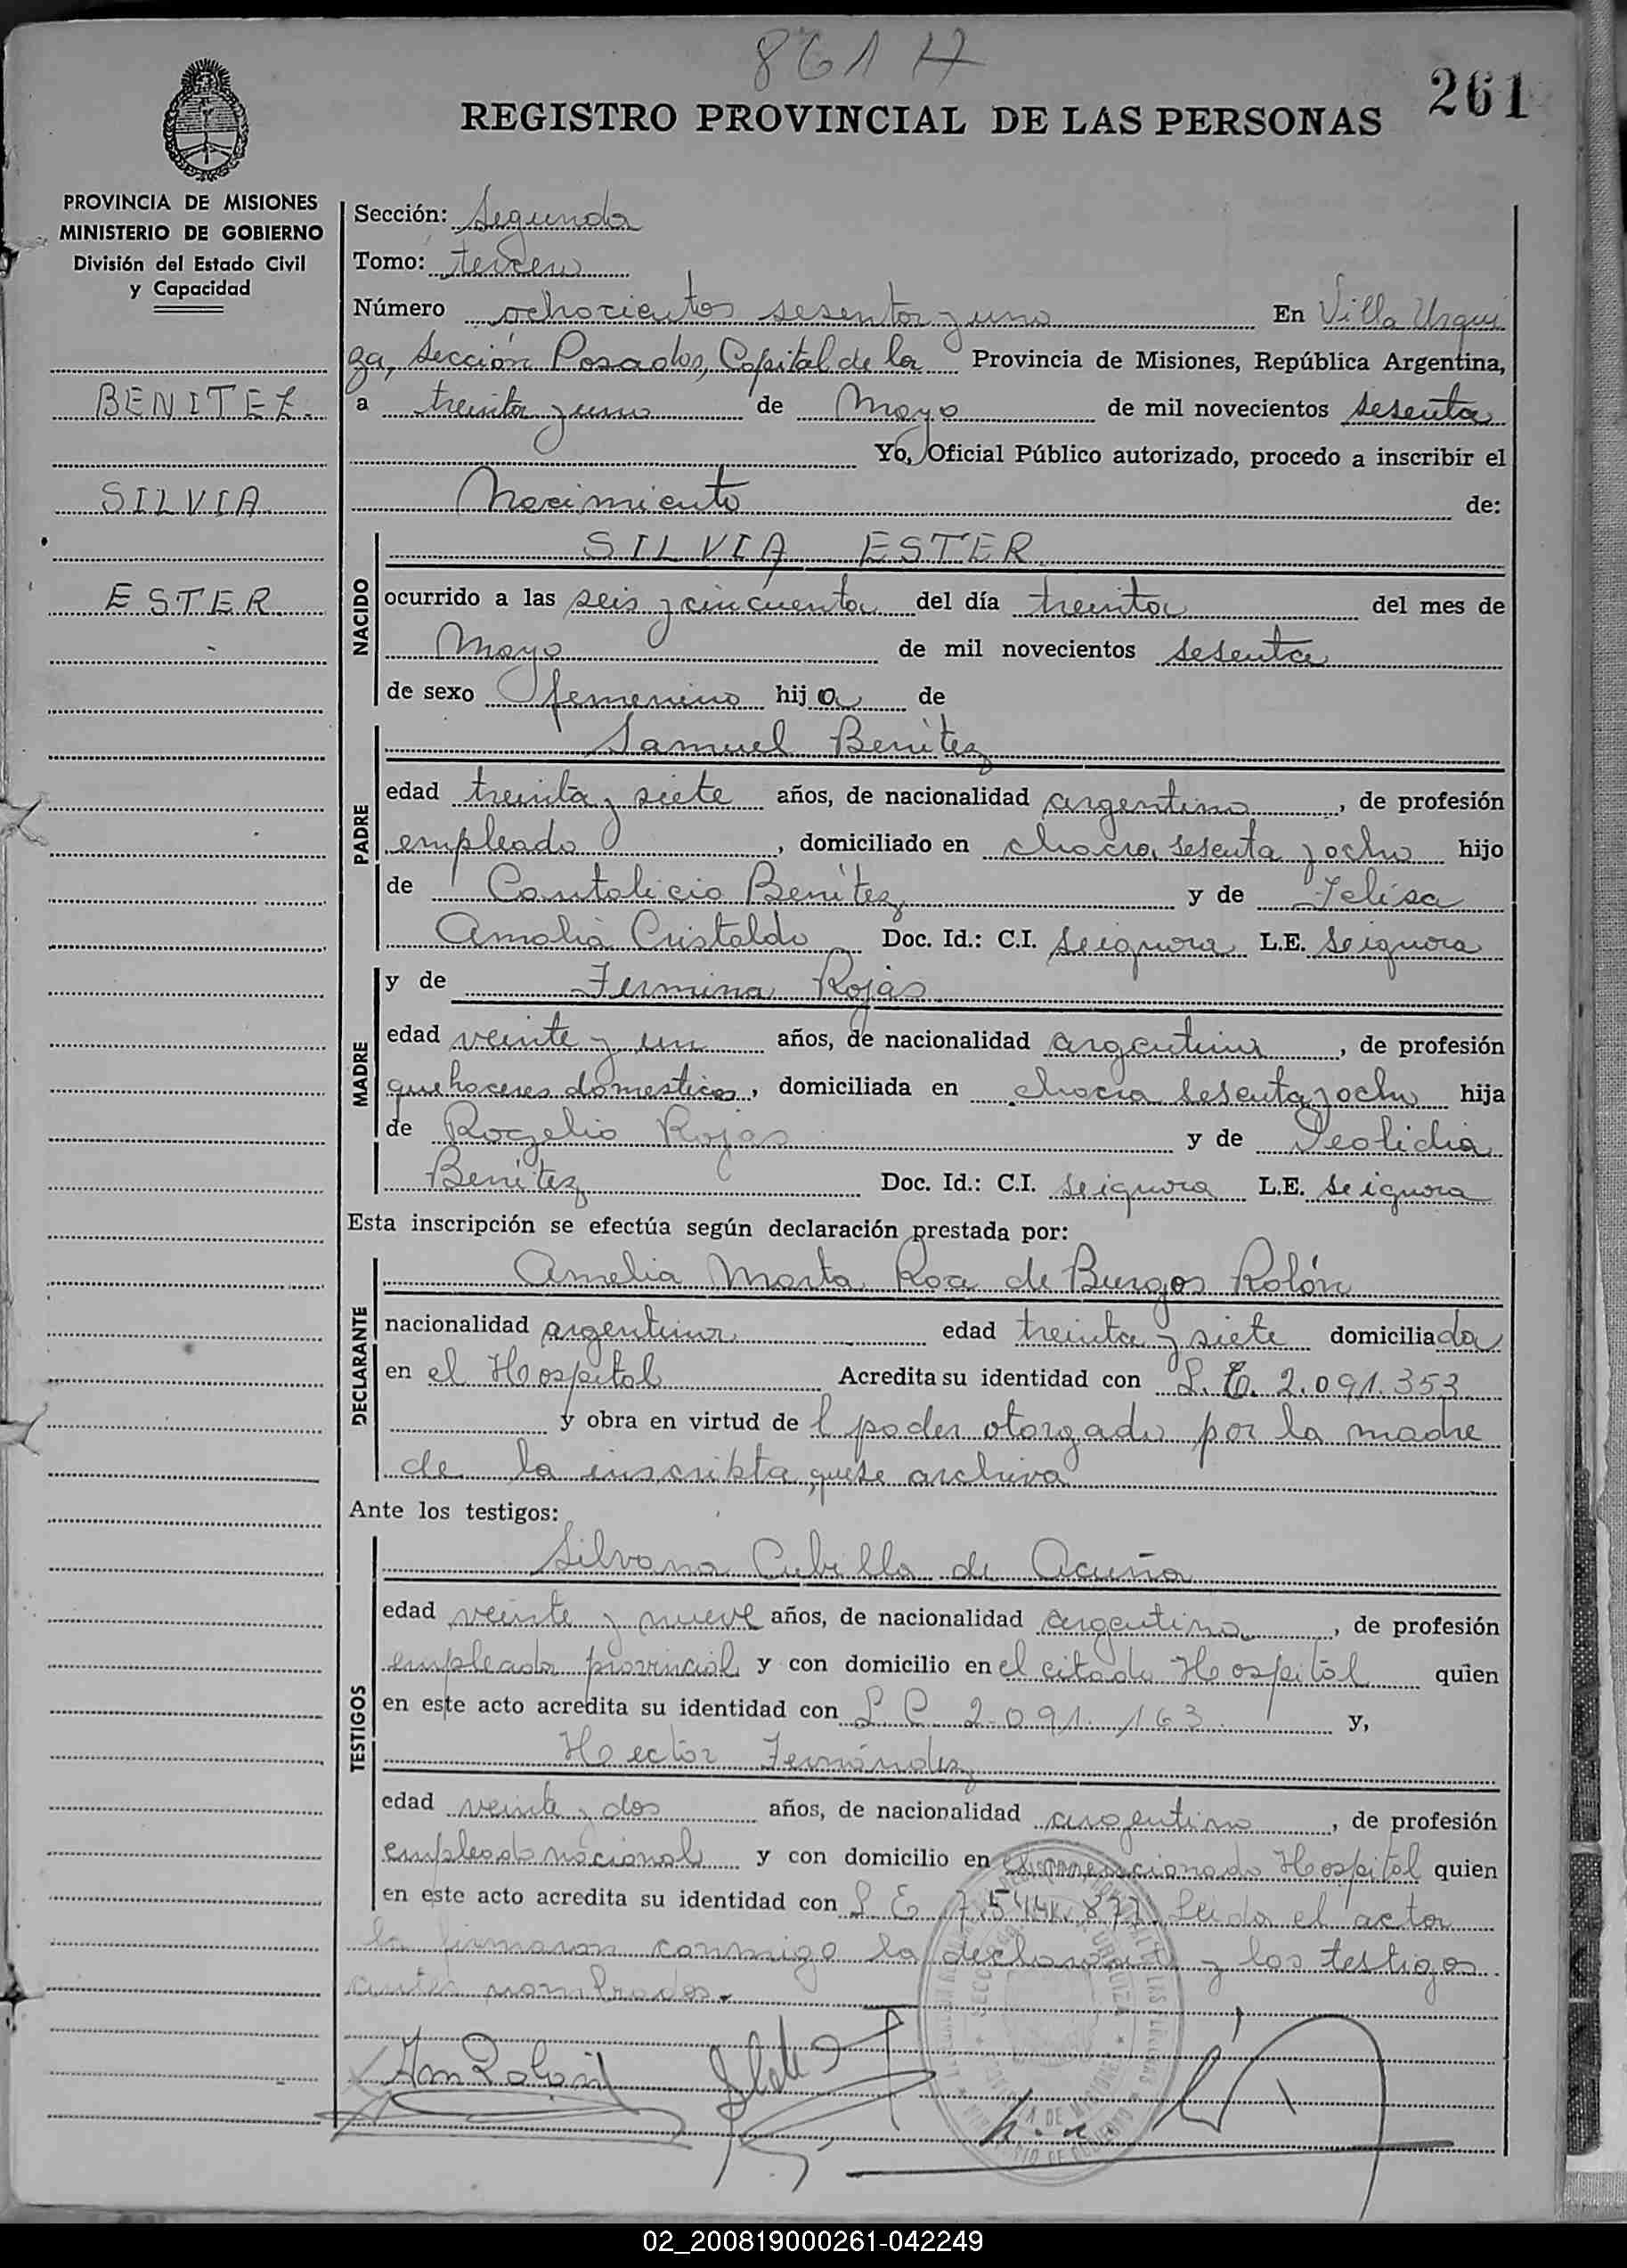 861 H
261
REGISTRO PROVINCIAL DE LAS PERSONAS
PROVINCIA DE MISIONES
MINISTERIO DE GOBIERNO
División del Estado Civil
y Capacidad
BENITEZ.
SILVIA
ESTER
Sección: Segunda
Tomo: tercero
Número ochocientos sesenta y uno En Villa Urqui
za, Sección Posadas, Capital de la Provincia de Misiones, República Argentina,
a treinta y uno de Mayo de mil novecientos sesenta
Yo, Oficial Público autorizado, procedo a inscribir el
Nacimiento de:
NACIDO
SILVIA ESTER
ocurrido a las seis y cincuenta del día treinta del mes de
Mayo de mil novecientos sesenta
de sexo femenino hija de
PADRE
Samuel Benítez
edad treinta y siete años, de nacionalidad argentino, de profesión
empleado, domiciliado en chacra sesenta y ocho hijo
de Cantalicio Benítez y de Felisa
Amalia Cristaldo Doc. Id.: C.I. se ignora L.E. se ignora
MADRE
y de Fermina Rojas
edad veinte y un años, de nacionalidad argentina, de profesión
quehaceres domesticos, domiciliada en chacra sesenta y ocho hija
de Rogelio Rojas y de
Benítez Doc. Id.: C.I. se ignora L.E. se ignora
Esta inscripción se efectúa según declaración prestada por:
DECLARANTE
Amelia Marta Roa de Burgos Rolón
nacionalidad argentina edad treinta y siete domiciliada
en el Hospital Acredita su identidad con L. C. 2.091.353
y obra en virtud del poder otorgado por la madre
de la inscripta, que se archiva
Ante los testigos:
TESTIGOS
Silvana Cubilla de Acuña
edad veinte y nueve años, de nacionalidad argentina, de profesión
empleada provincial y con domicilio en el citado Hospital quien
en este acto acredita su identidad con L C 2.091.163 y,
Hector Fernández
edad veinte y dos años, de nacionalidad argentino, de profesión
empleado nacional y con domicilio en el mencionado Hospital quien
en este acto acredita su identidad con L E 7.544.877. Leida el acta
la firmaron conmigo la declarante y los testigos
antes nombrados.
Am Rolon
02_200819000261-042249